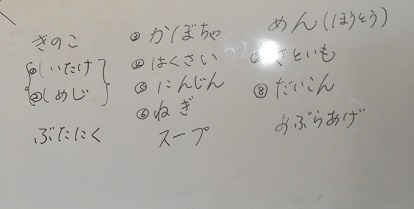 きのこ
①しいたけ
②しめじ
ぶたにく
③かぼちゃ
④はくさい
⑤にんじん
⑥ねぎ
スープ
めん(ほうとう)
さといも
⑧だいこん
あぶらあげ